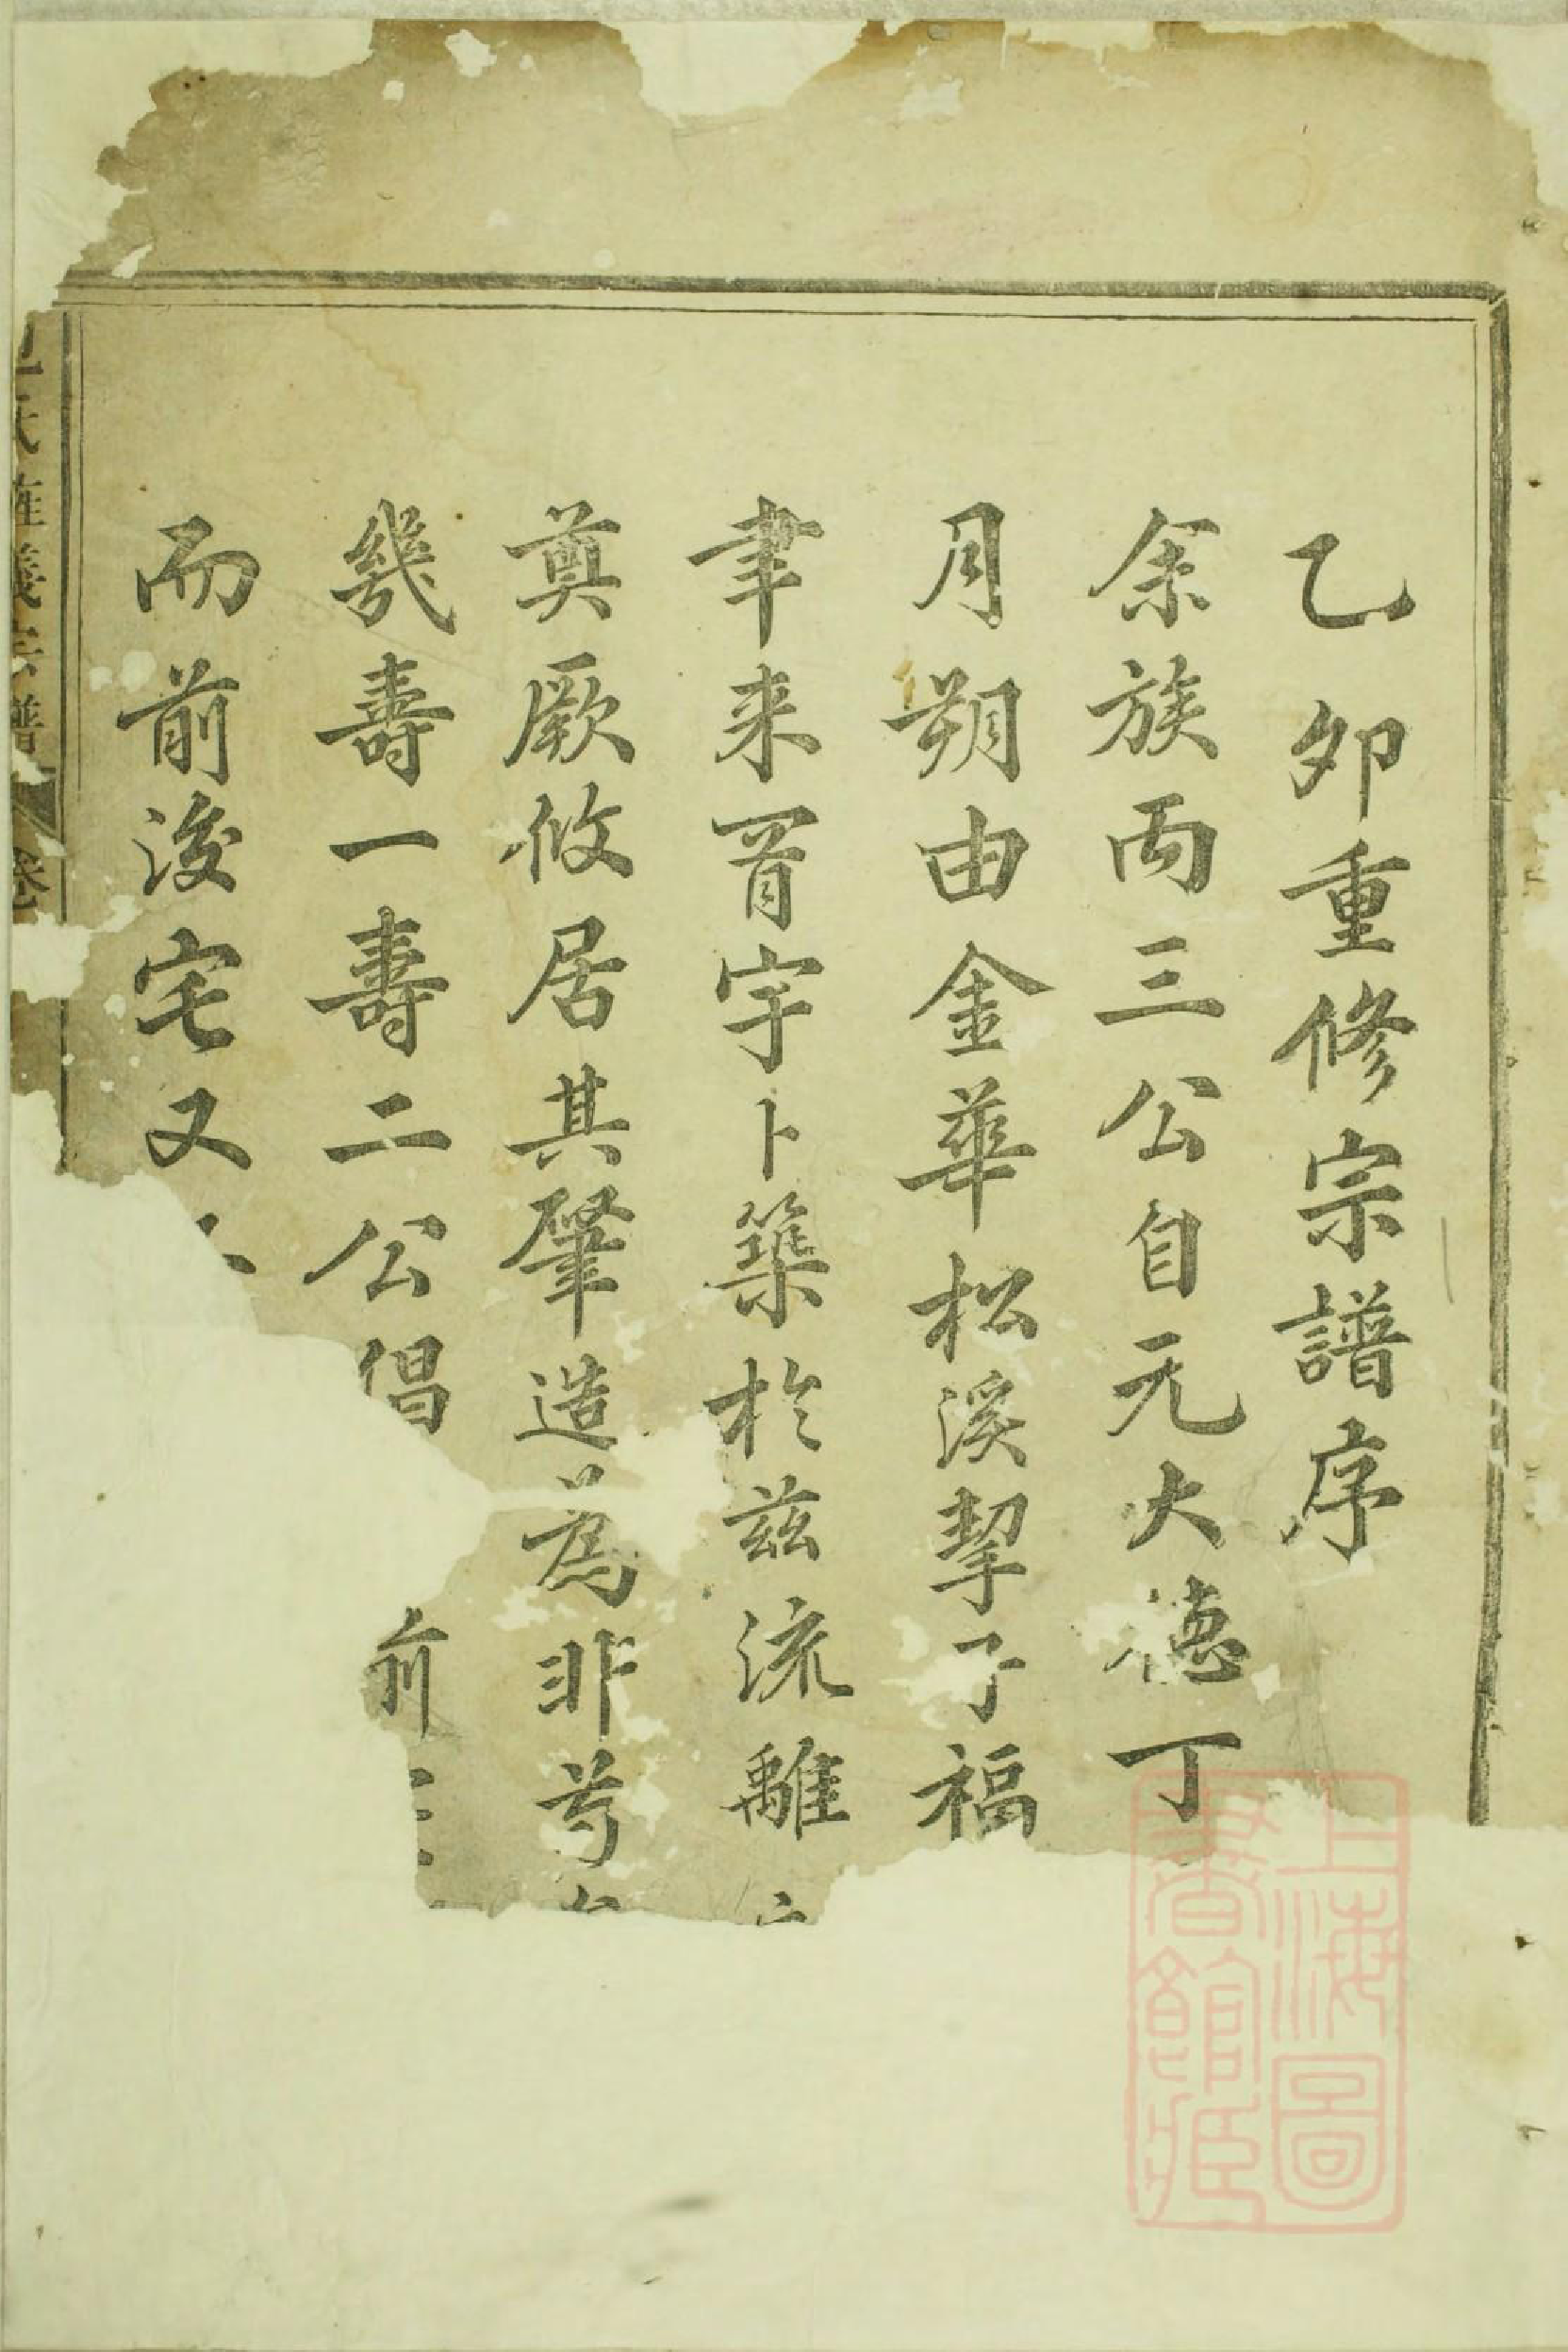 乙卯重修宗譜序
余族丙三公自元大德丁
月朔由金華松溪挈子福
聿来胥宇卜築扵兹流離
奠厥攸居其肇造為非芍
幾壽一壽二公倡前
而前後宅又
義宗譜
卷
上海圖
書館藏